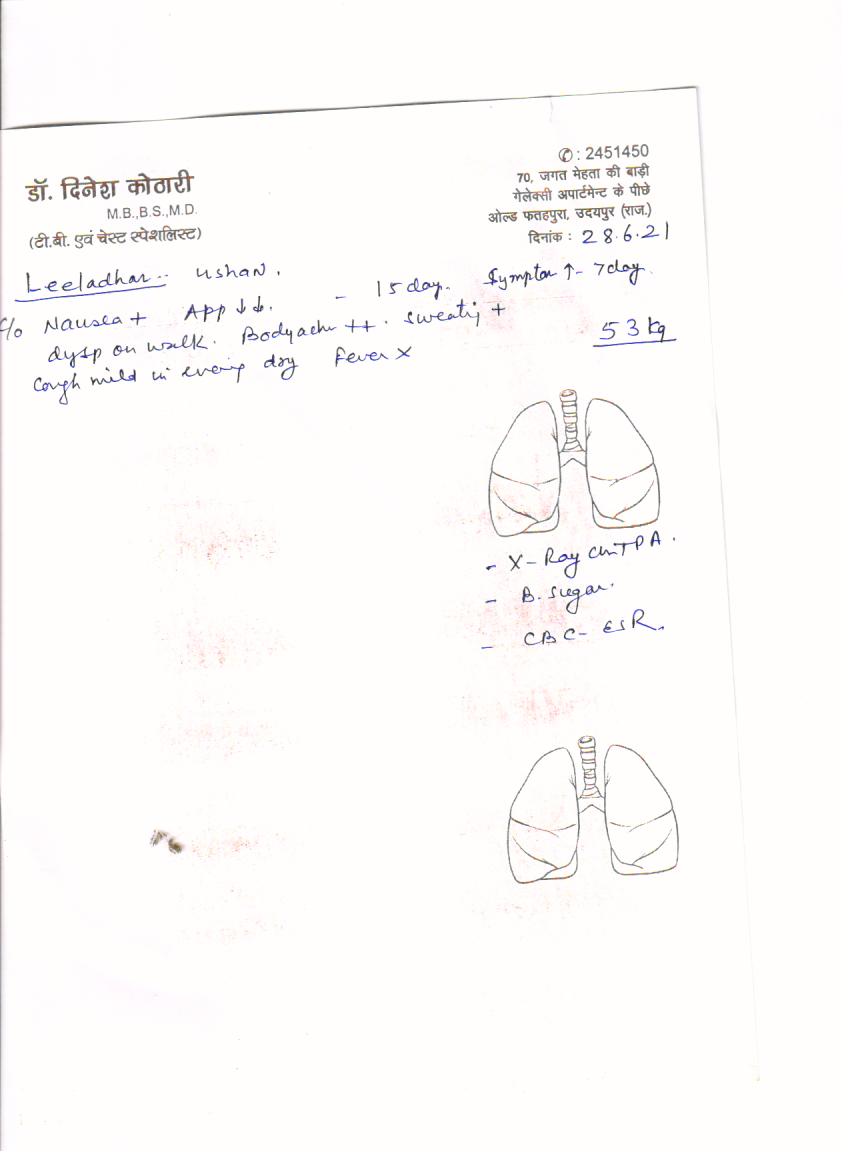 ✆ : 2451450
डॉ. दिनेश कोठारी
70, जगत मेहता की बाड़ी
M.B.,B.S.,M.D.
गेलेक्सी अपार्टमेन्ट के पीछे
(टी.बी. एवं चेस्ट स्पेशलिस्ट)
ओल्ड फतहपुरा, उदयपुर (राज.)
दिनांक : 28.6.21
Leeladhar
c/o Nausea + App ↓↓. - 15 day. Symptom ↑ - 7 day.
dysp on walk. Bodyache ++. sweatig +
53 kg
Cough mild in evenig dry Fever x
- X-Ray PA.
- B. Sugar.
- CBC - ESR.